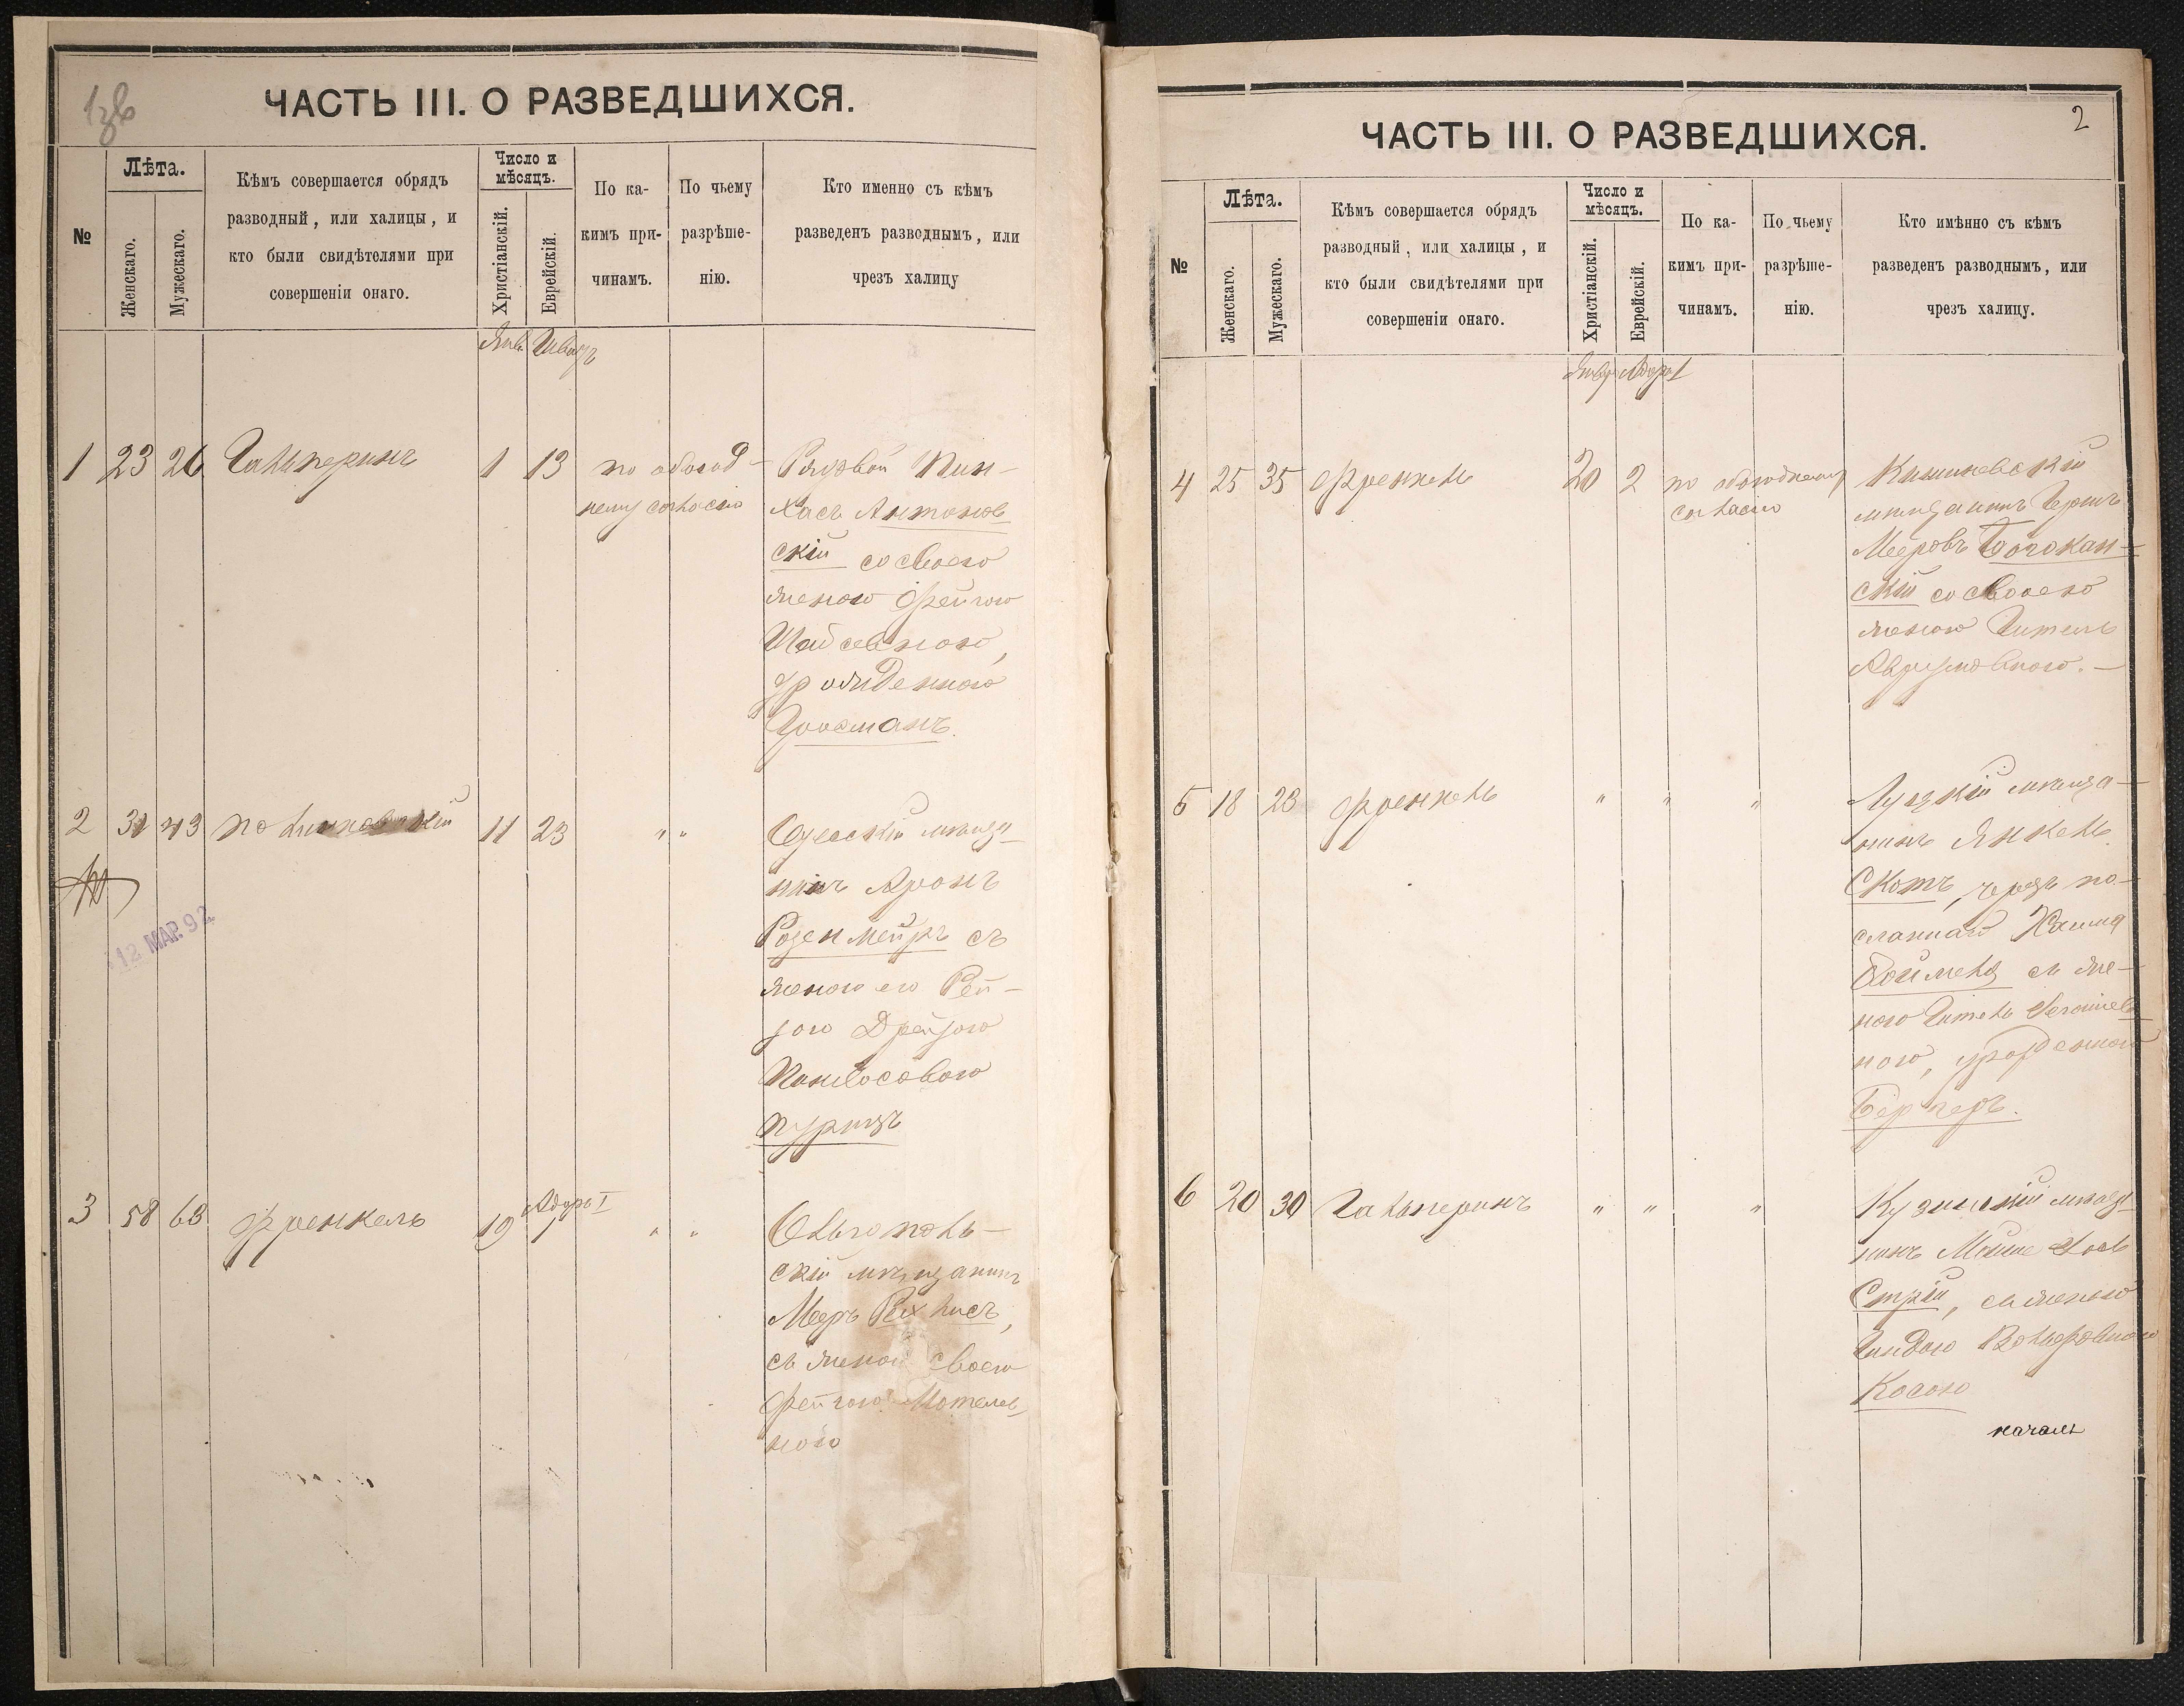 ЧАСТЬ III. О РАЗВЕДШИХСЯ.
№
Лѣта.
Женскаго.
Мужескаго.
Кѣмъ совершается обрядъ
разводный, или халицы, и
кто были свидѣтелями при
совершеніи онаго.
Число и
мѣсяцъ.
Христіанскій.
Еврейскій.
По ка-
кимъ при-
чинамъ.
По чьему
разрѣше-
нію.
Кто именно съ кѣмъ
разведенъ разводнымъ, или
чрезъ халицу
Янв. Шватъ
1 23 26 Гальперинъ 1 13 по обоюд-
ному согласію
Рядвой Пин-
хасъ Антонов
скій со своею
женою Фейгою
Шайевною,
урожденною
Гросманъ.
2 31 43 11 23 " "
Одесскій мѣща-
нинъ Аронъ
Розенмейръ съ
женою его Рей-
зою Дрейзою
Пинхосовою
Пурицъ
12 МАР. 92
3 58 63 Френкель 19 Адаръ I 1 " "
Ольгополь-
скій мѣщанинъ
Меръ Рехлисъ,
съ женой своею
Фейгою Мотелев
ною
ЧАСТЬ III. О РАЗВЕДШИХСЯ.
2
№
Лѣта.
Женскаго.
Мужескаго.
Кѣмъ совершается обрядъ
разводный, или халицы, и
кто были свидѣтелями при
совершеніи онаго.
Число и
мѣсяцъ.
Христіанскій.
Еврейскій.
По ка-
кимъ при-
чинамъ.
По чьему
разрѣше-
нію.
Кто имѣнно съ кѣмъ
разведенъ разводнымъ, или
чрезъ халицу.
Январ Адаръ I
4 25 35 Френкель 20 2 по обоюдному
согласію
Кишиневскій
мѣщанинъ Гершъ
Меровъ Богокан-
скій со своею
женою Гитель
Аврумовною.-
5 18 23 Френкель " " "
Луцкій мѣща-
нинъ Янкель
Скотъ, чрезъ по-
сланнаго Хаима
Боймель съ же-
ною Гитель
ною, урожденной
Бергеръ.
6 20 30 Гальперинъ " " "
мѣща-
нинъ Мойше Іосъ
Стрій, съ женою
Гиндою Вольфовною
Косою